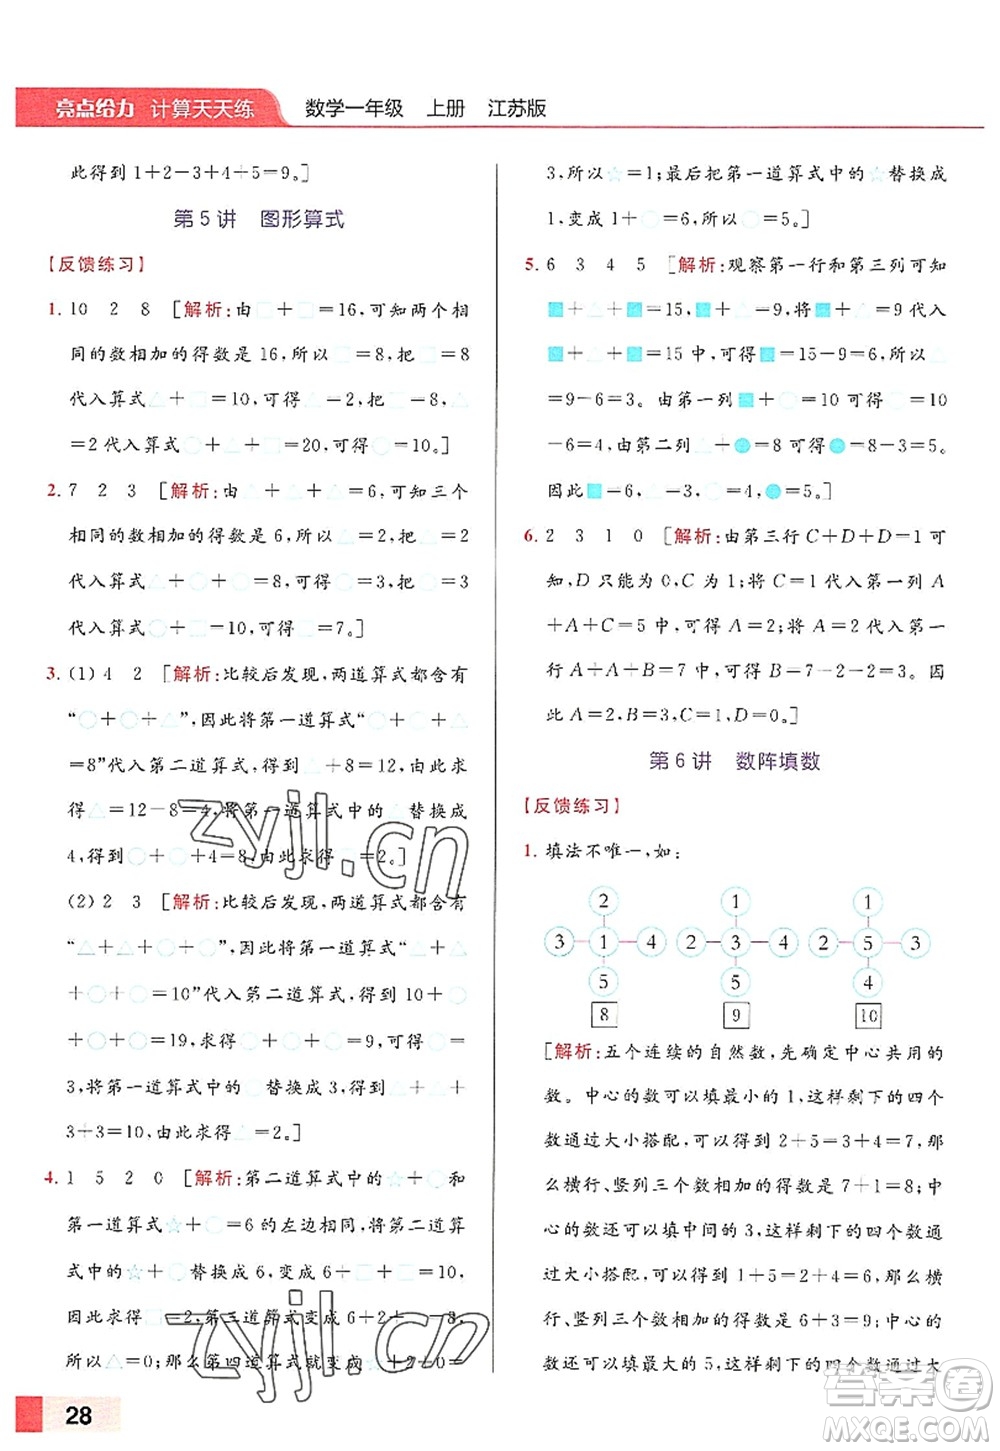 亮点给力 计算天天练 数学一年级 上册 江苏版
此得到 1+2-3+4+5=9。]
第 5 讲 图形算式
【反馈练习】
1. 10 2 8 [解析:由□+□=16,可知两个相
同的数相加的得数是 16,所以□=8,把□=8
代入算式△+□=10,可得△=2,把□=8,△
=2代入算式○+△+□=20,可得○=10。]
2. 7 2 3 [解析:由△+△+△=6,可知三个
相同的数相加的得数是 6,所以△=2,把△=2
代入算式△+□=5,可得□=3,把□=3
代入算式○+□=10,可得○=7。]
3. (1) 4 2 [解析:比较后发现,两道算式都含有
“○+○+△”,因此将第一道算式“○+○+△
=8”代入第二道算式,得到△+8=12,由此求
得△=12-8=4,将第一道算式中的△替换成
4,得到○+○+4=8,由此求得○=2。]
(2) 2 3 [解析:比较后发现,两道算式都含有
“△+△+○+○”,因此将第一道算式“△+△
+○+○=10”代入第二道算式,得到
10+○+○+○=19,求得○+○+○=9,○=
3,将第一道算式中的○替换成3,得到△+△+
3+3=10,由此求得△=2。]
4. 1 5 2 0 [解析:第二道算式中的☆+○和
第一道算式☆+○=6 的左边相同,将第二道算
式中的☆+○替换成 6,变成 6+□+□=10,
因此求得□=2。第三道算式变成 6+2+△=8,
所以△=0;那么第四道算式就变成☆+2+0=
3,所以☆=1;最后把第一道算式中的☆替换成
1,变成 1+○=6,所以○=5。]
5. 6 3 4 5 [解析:观察第一行和第三列可知
■+△+■=15,■+△=9,将■+△=9代入
■+△+■=15 中,可得■=15-9=6。所以△
=9-6=3。由第一列■+○=10 可得○=10
-6=4,由第二列△+●=8可得●=8-3=5。
因此■=6,△=3,○=4,●=5。]
6. 2 3 1 0 [解析:由第三行 C+D+D=1可
知,D 只能为 0,C 为 1;将 C=1 代入第一列 A
+A+C=5 中,可得 A=2;将 A=2代入第一
行 A+A+B=7 中,可得 B=7-2-2=3。因
此 A=2,B=3,C=1,D=0。]
第 6 讲 数阵填数
【反馈练习】
1. 填法不唯一,如:
2 1 1
3 1 4 2 3 4 2 5 3
5 5 4
8 9 10
[解析:五个连续的自然数,先确定中心共用的
数。中心的数可以填最小的 1,这样剩下的四个
数通过大小搭配,可以得到 2+5=3+4=7,那
么横行、竖列三个数相加的得数是 7+1=8;中
心的数还可以填中间的 3,这样剩下的四个数通
过大小搭配,可以得到 1+5=2+4=6,那么横
行、竖列三个数相加的得数是 6+3=9;中心的
数还可以填最大的 5,这样剩下的四个数通过大
28
zyjl.cn
zyjl.cn
答案圈
MXQE.COM